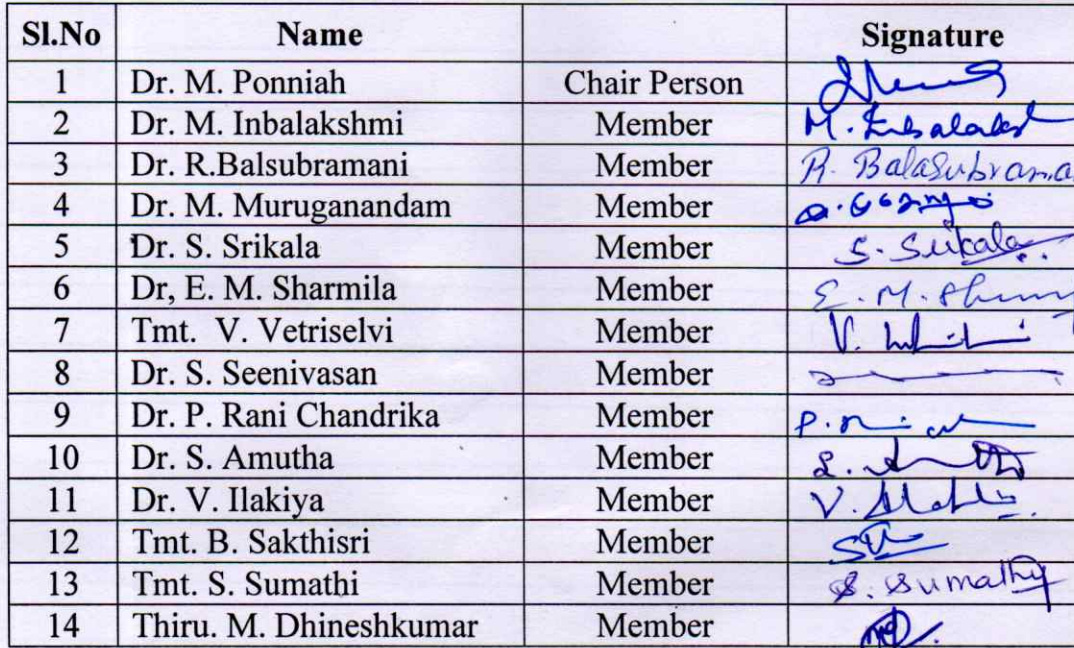 Sl.No Name Signature
1 Dr. M. Ponniah Chair Person
2 Dr. M. Inbalakshmi Member M. Inbalaksh
3 Dr. R.Balsubramani Member R. BalaSubrama
4 Dr. M. Muruganandam Member
5 Dr. S. Srikala Member S. Srikala
6 Dr, E. M. Sharmila Member E. M. Sharm
7 Tmt. V. Vetriselvi Member V.
8 Dr. S. Seenivasan Member
9 Dr. P. Rani Chandrika Member P.
10 Dr. S. Amutha Member S.
11 Dr. V. Ilakiya Member V.
12 Tmt. B. Sakthisri Member
13 Tmt. S. Sumathi Member S. Sumathy
14 Thiru. M. Dhineshkumar Member